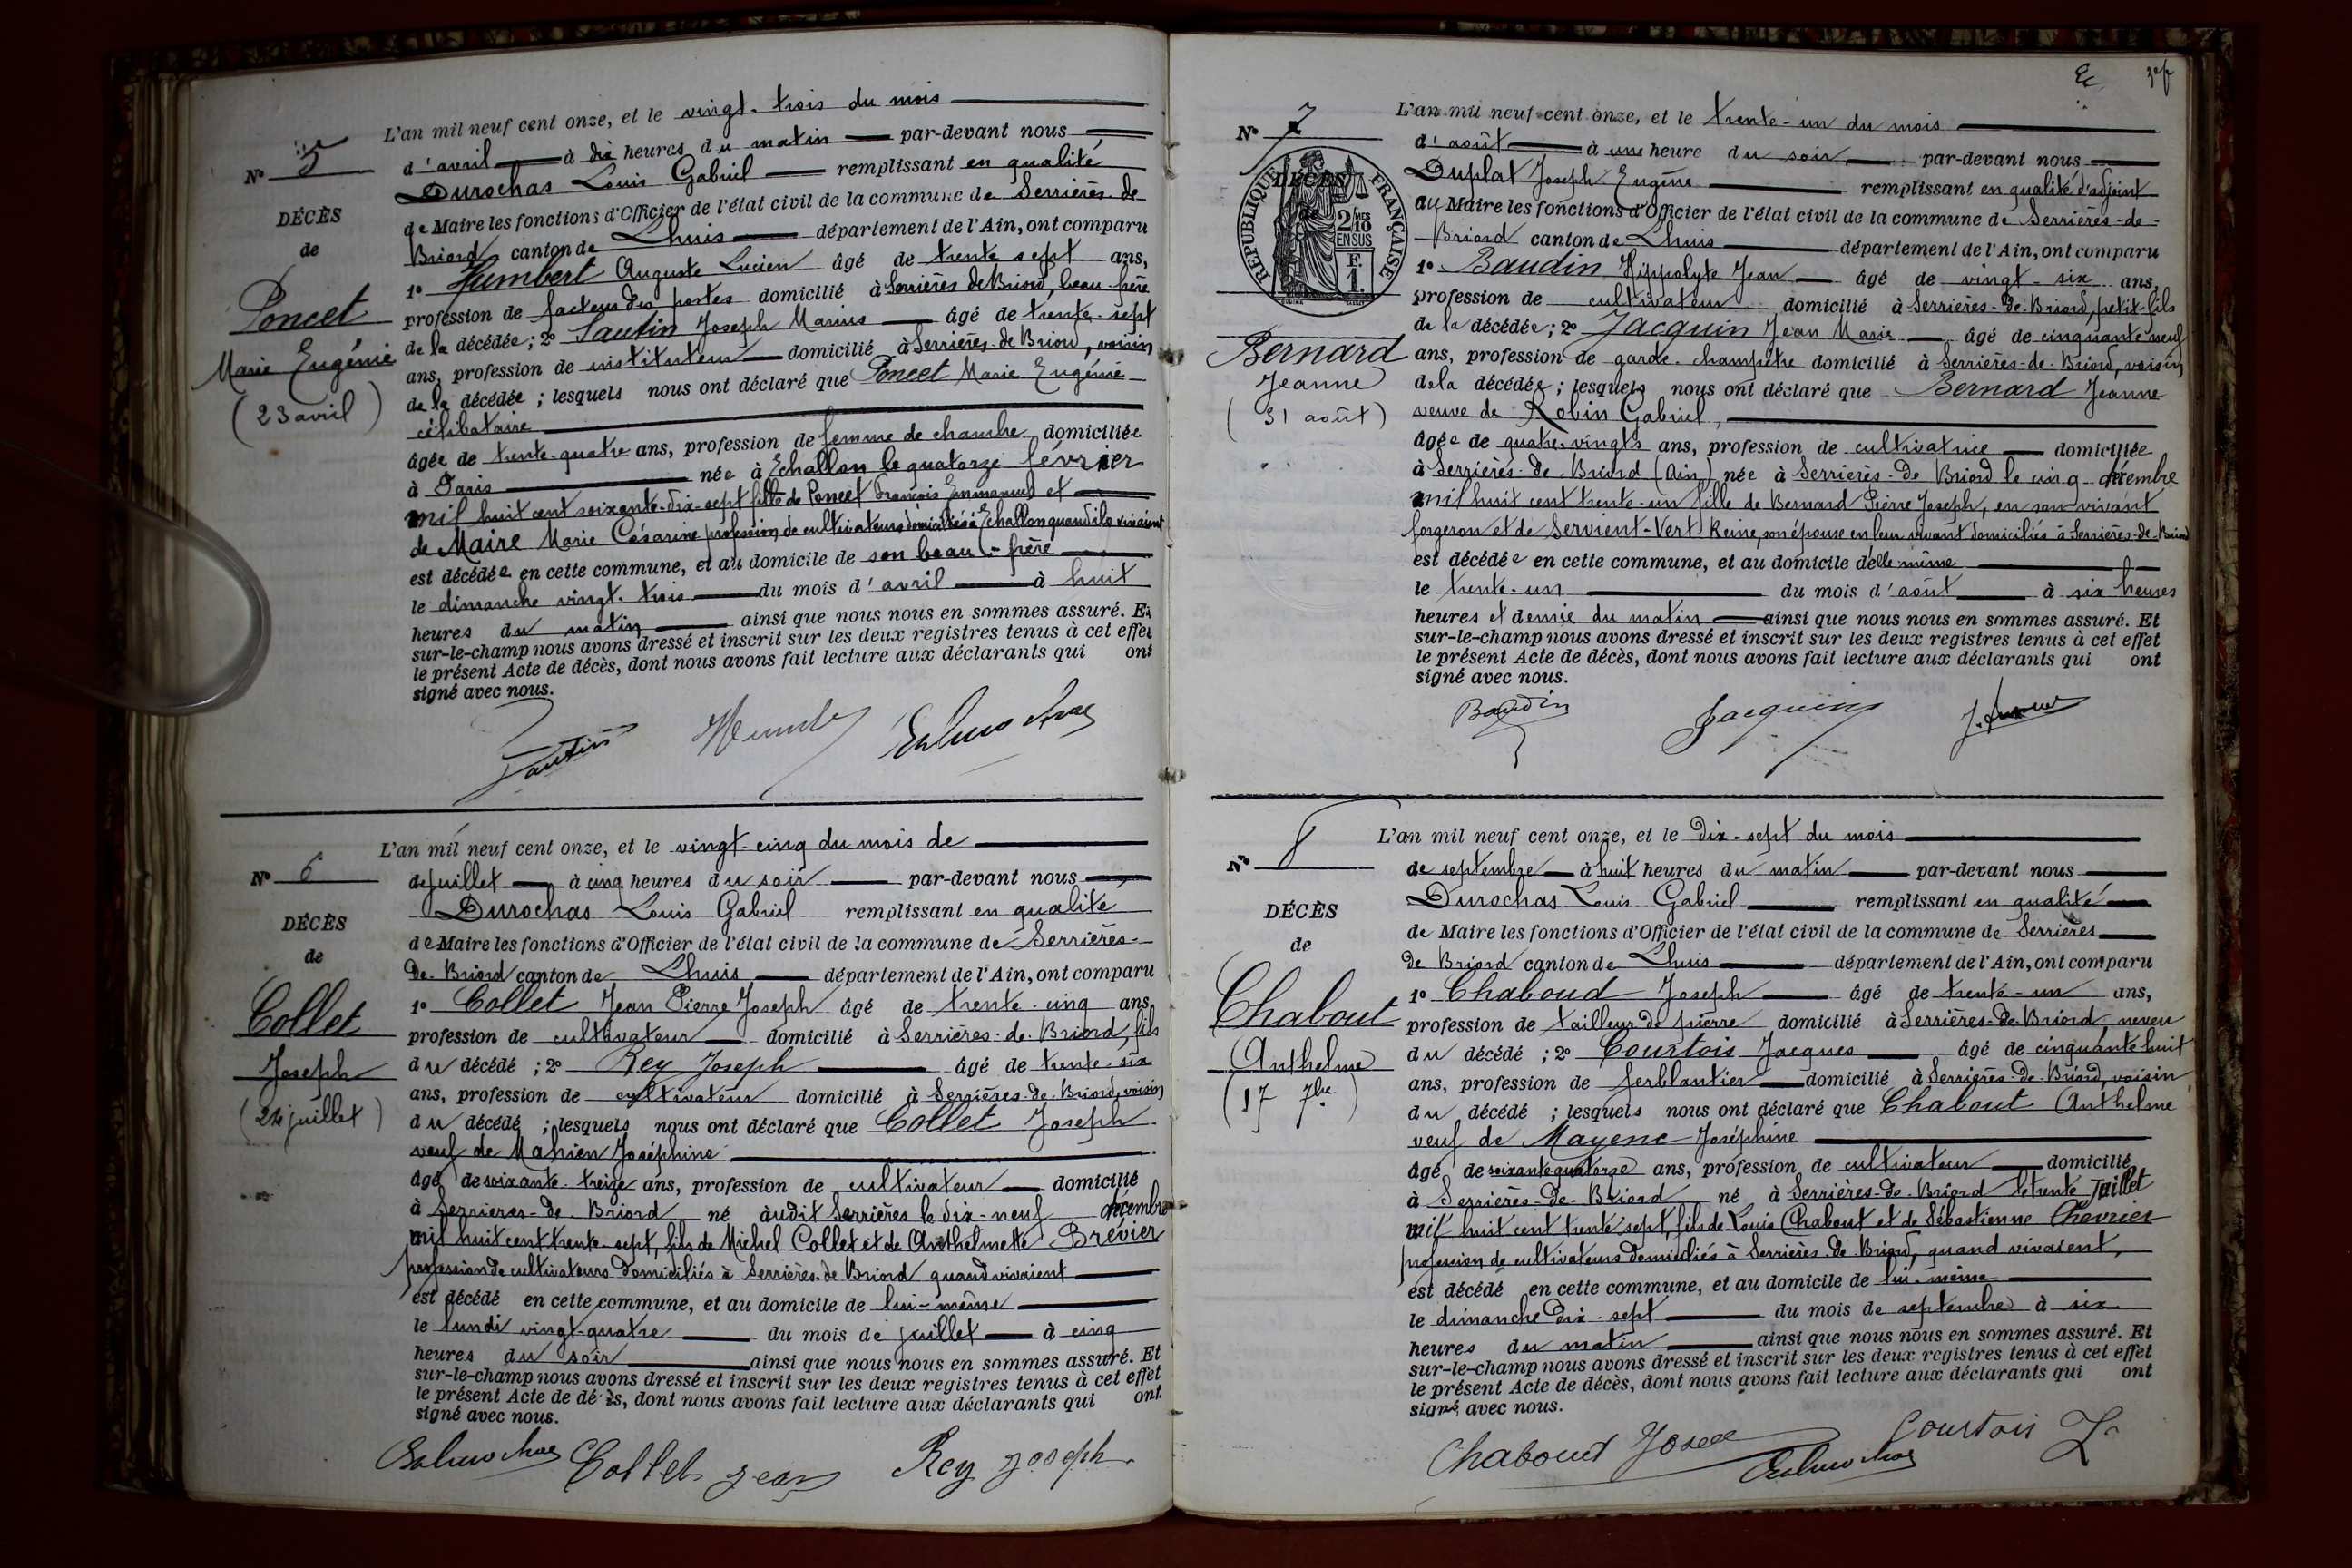 L'an mil neuf cent onze, et le vingt-trois du mois
N° 5
d'avril à dix heures du matin par-devant nous
Durochas Louis Gabriel remplissant en qualité
DÉCÈS
de Maire les fonctions d'Officier de l'état civil de la commune de Serrières-de-
de
Briord canton de Lhuis département de l'Ain, ont comparu
1° Humbert Auguste Lucien âgé de trente sept ans,
Poncet
profession de facteur des postes domicilié à Serrières de Briord, beau-frère
de la décédée; 2° Sautin Joseph Marius âgé de trente-sept
Marie Eugénie
ans, profession de instituteur domicilié à Serrières-de-Briord, voisin
(23 avril)
de la décédée; lesquels nous ont déclaré que Poncet Marie Eugénie
célibataire
âgée de trente-quatre ans, profession de femme de chambre domiciliée
à Paris née à Echallon le quatorze février
mil huit cent soixante-dix-sept fille de Poncet François Emmanuel et
de Maire Marie Césarine profession de cultivateurs domiciliés à Echallon quand ils vivaient
est décédée en cette commune, et au domicile de son beau-frère
le dimanche vingt-trois du mois d'avril à huit
heures du matin ainsi que nous nous en sommes assuré. Et
sur-le-champ nous avons dressé et inscrit sur les deux registres tenus à cet effet
le présent Acte de décès, dont nous avons fait lecture aux déclarants qui ont
signé avec nous.
Sautin
L'an mil neuf cent onze, et le vingt-cinq du mois de
N° 6
de juillet à cinq heures du soir par-devant nous
Durochas Louis Gabriel remplissant en qualité
DÉCÈS
de Maire les fonctions d'Officier de l'état civil de la commune de Serrières-
de
de-Briord canton de Lhuis département de l'Ain, ont comparu
Collet
1° Collet Jean Pierre Joseph âgé de trente-cinq ans,
profession de cultivateur domicilié à Serrières-de-Briord, fils
Joseph
du décédé; 2° Rey Joseph âgé de trente-six
ans, profession de cultivateur domicilié à Serrières-de-Briord, voisin
(24 juillet)
du décédé; lesquels nous ont déclaré que Collet Joseph
veuf de Mahien Joséphine
âgé de soixante-treize ans, profession de cultivateur domicilié
à Serrières-de-Briord né àudit Serrières le dix-neuf décembre
mil huit cent trente-sept, fils de Michel Collet et de Anthelmette Brévier
profession de cultivateurs domiciliés à Serrières-de-Briord quand vivaient
est décédé en cette commune, et au domicile de lui-même
le lundi vingt-quatre du mois de juillet à cinq
heures du soir ainsi que nous nous en sommes assuré. Et
sur-le-champ nous avons dressé et inscrit sur les deux registres tenus à cet effet
le présent Acte de décès, dont nous avons fait lecture aux déclarants qui ont
signé avec nous.
Collet Jean Rey Joseph
L'an mil neuf cent onze, et le trente-un du mois
N° 7
d'août à une heure du soir par-devant nous
Duplat Joseph Eugène remplissant en qualité d'adjoint
DÉCÈS
RÉPUBLIQUE FRANÇAISE
2/10MES
EN SUS
F.
1.
au Maire les fonctions d'Officier de l'état civil de la commune de Serrières-de-
Briord canton de Lhuis département de l'Ain, ont comparu
1° Baudin Hippolyte Jean âgé de vingt-six ans,
profession de cultivateur domicilié à Serrières-de-Briord, petit-fils
de la décédée; 2° Jacquin Jean Marie âgé de cinquante neuf
Bernard
ans, profession de garde-champêtre domicilié à Serrières-de-Briord, voisin
Jeanne
de la décédée; lesquels nous ont déclaré que Bernard Jeanne
(31 août)
veuve de Robin Gabriel,
âgée de quatre-vingts ans, profession de cultivatrice domiciliée
à Serrières-de-Briord (Ain) née à Serrières-de-Briord le cinq décembre
mil huit cent trente-un fille de Bernard Pierre Joseph, en son vivant
forgeron et de Servient-Vert Reine, son épouse en leur vivant domiciliés à Serrières-de-Briord
est décédée en cette commune, et au domicile d'elle même
le trente-un du mois d'août à six heures
heures et demie du matin ainsi que nous nous en sommes assuré. Et
sur-le-champ nous avons dressé et inscrit sur les deux registres tenus à cet effet
le présent Acte de décès, dont nous avons fait lecture aux déclarants qui ont
signé avec nous.
Baudin Jacquin
L'an mil neuf cent onze, et le dix-sept du mois
N° 8
de septembre à huit heures du matin par-devant nous
Durochas Louis Gabriel remplissant en qualité
DÉCÈS
de Maire les fonctions d'Officier de l'état civil de la commune de Serrières
de
de Briord canton de Lhuis département de l'Ain, ont comparu
1° Chaboud Joseph âgé de trente-un ans,
Chabout
profession de tailleur de pierre domicilié à Serrières-de-Briord, neveu
Anthelme
du décédé; 2° Courtois Jacques âgé de cinquante huit
ans, profession de ferblantier domicilié à Serrières-de-Briord, voisin
(17 7bre)
du décédé; lesquels nous ont déclaré que Chabout Anthelme
veuf de Mayenc Joséphine
âgé de soixante quatorze ans, profession de cultivateur domicilié
à Serrières-de-Briord né à Serrières-de-Briord le trente Juillet
mil huit cent trente sept, fils de Louis Chabout et de Sébastienne Chevrier
profession de cultivateurs domiciliés à Serrières-de-Briord, quand vivaient,
est décédé en cette commune, et au domicile de lui-même
le dimanche dix-sept du mois de septembre à six
heures du matin ainsi que nous nous en sommes assuré. Et
sur-le-champ nous avons dressé et inscrit sur les deux registres tenus à cet effet
le présent Acte de décès, dont nous avons fait lecture aux déclarants qui ont
signé avec nous.
Chaboud Courtois